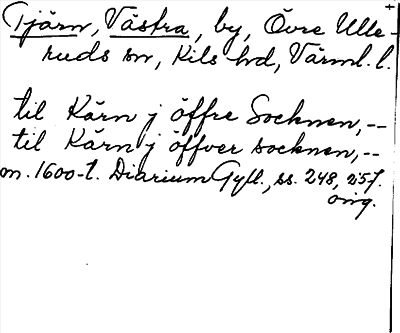 Tjärn, Västra, by, Övre Ulle-
ruds sn, Kils hd, Värml. l.
til Kärn j öffre Socknen,--
til Kärn j öffver socknen,--
m. 1600-t. Diarium Gyll., ss. 248, 257.
orig.